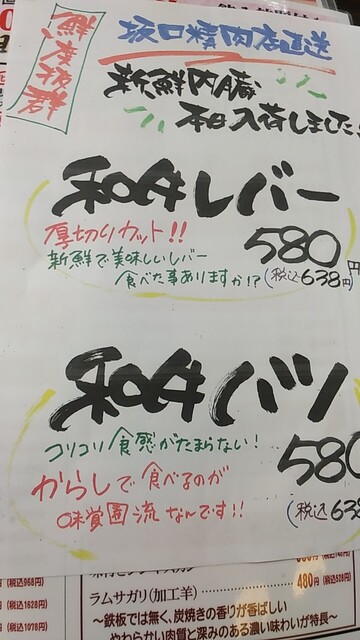 鮮度抜群
坂口精肉店直送
新鮮内臓
本日入荷しました
和牛レバー
厚切りカット!!
580円
新鮮で美味しいレバー
食べた事ありますか!?
(税込638円)
和牛ハツ
コリコリ食感がたまらない!
580
からしで食べるのが
(税込638
味覚園流なんです!!
(税込968円)
(税込1628円)
(税込1078円)
ラムサガリ(加工羊)
480円(税込528円)
~鉄板では無く、炭焼きの香りが香ばしい
やわらかい肉質と深みのある濃い味わいが特長~